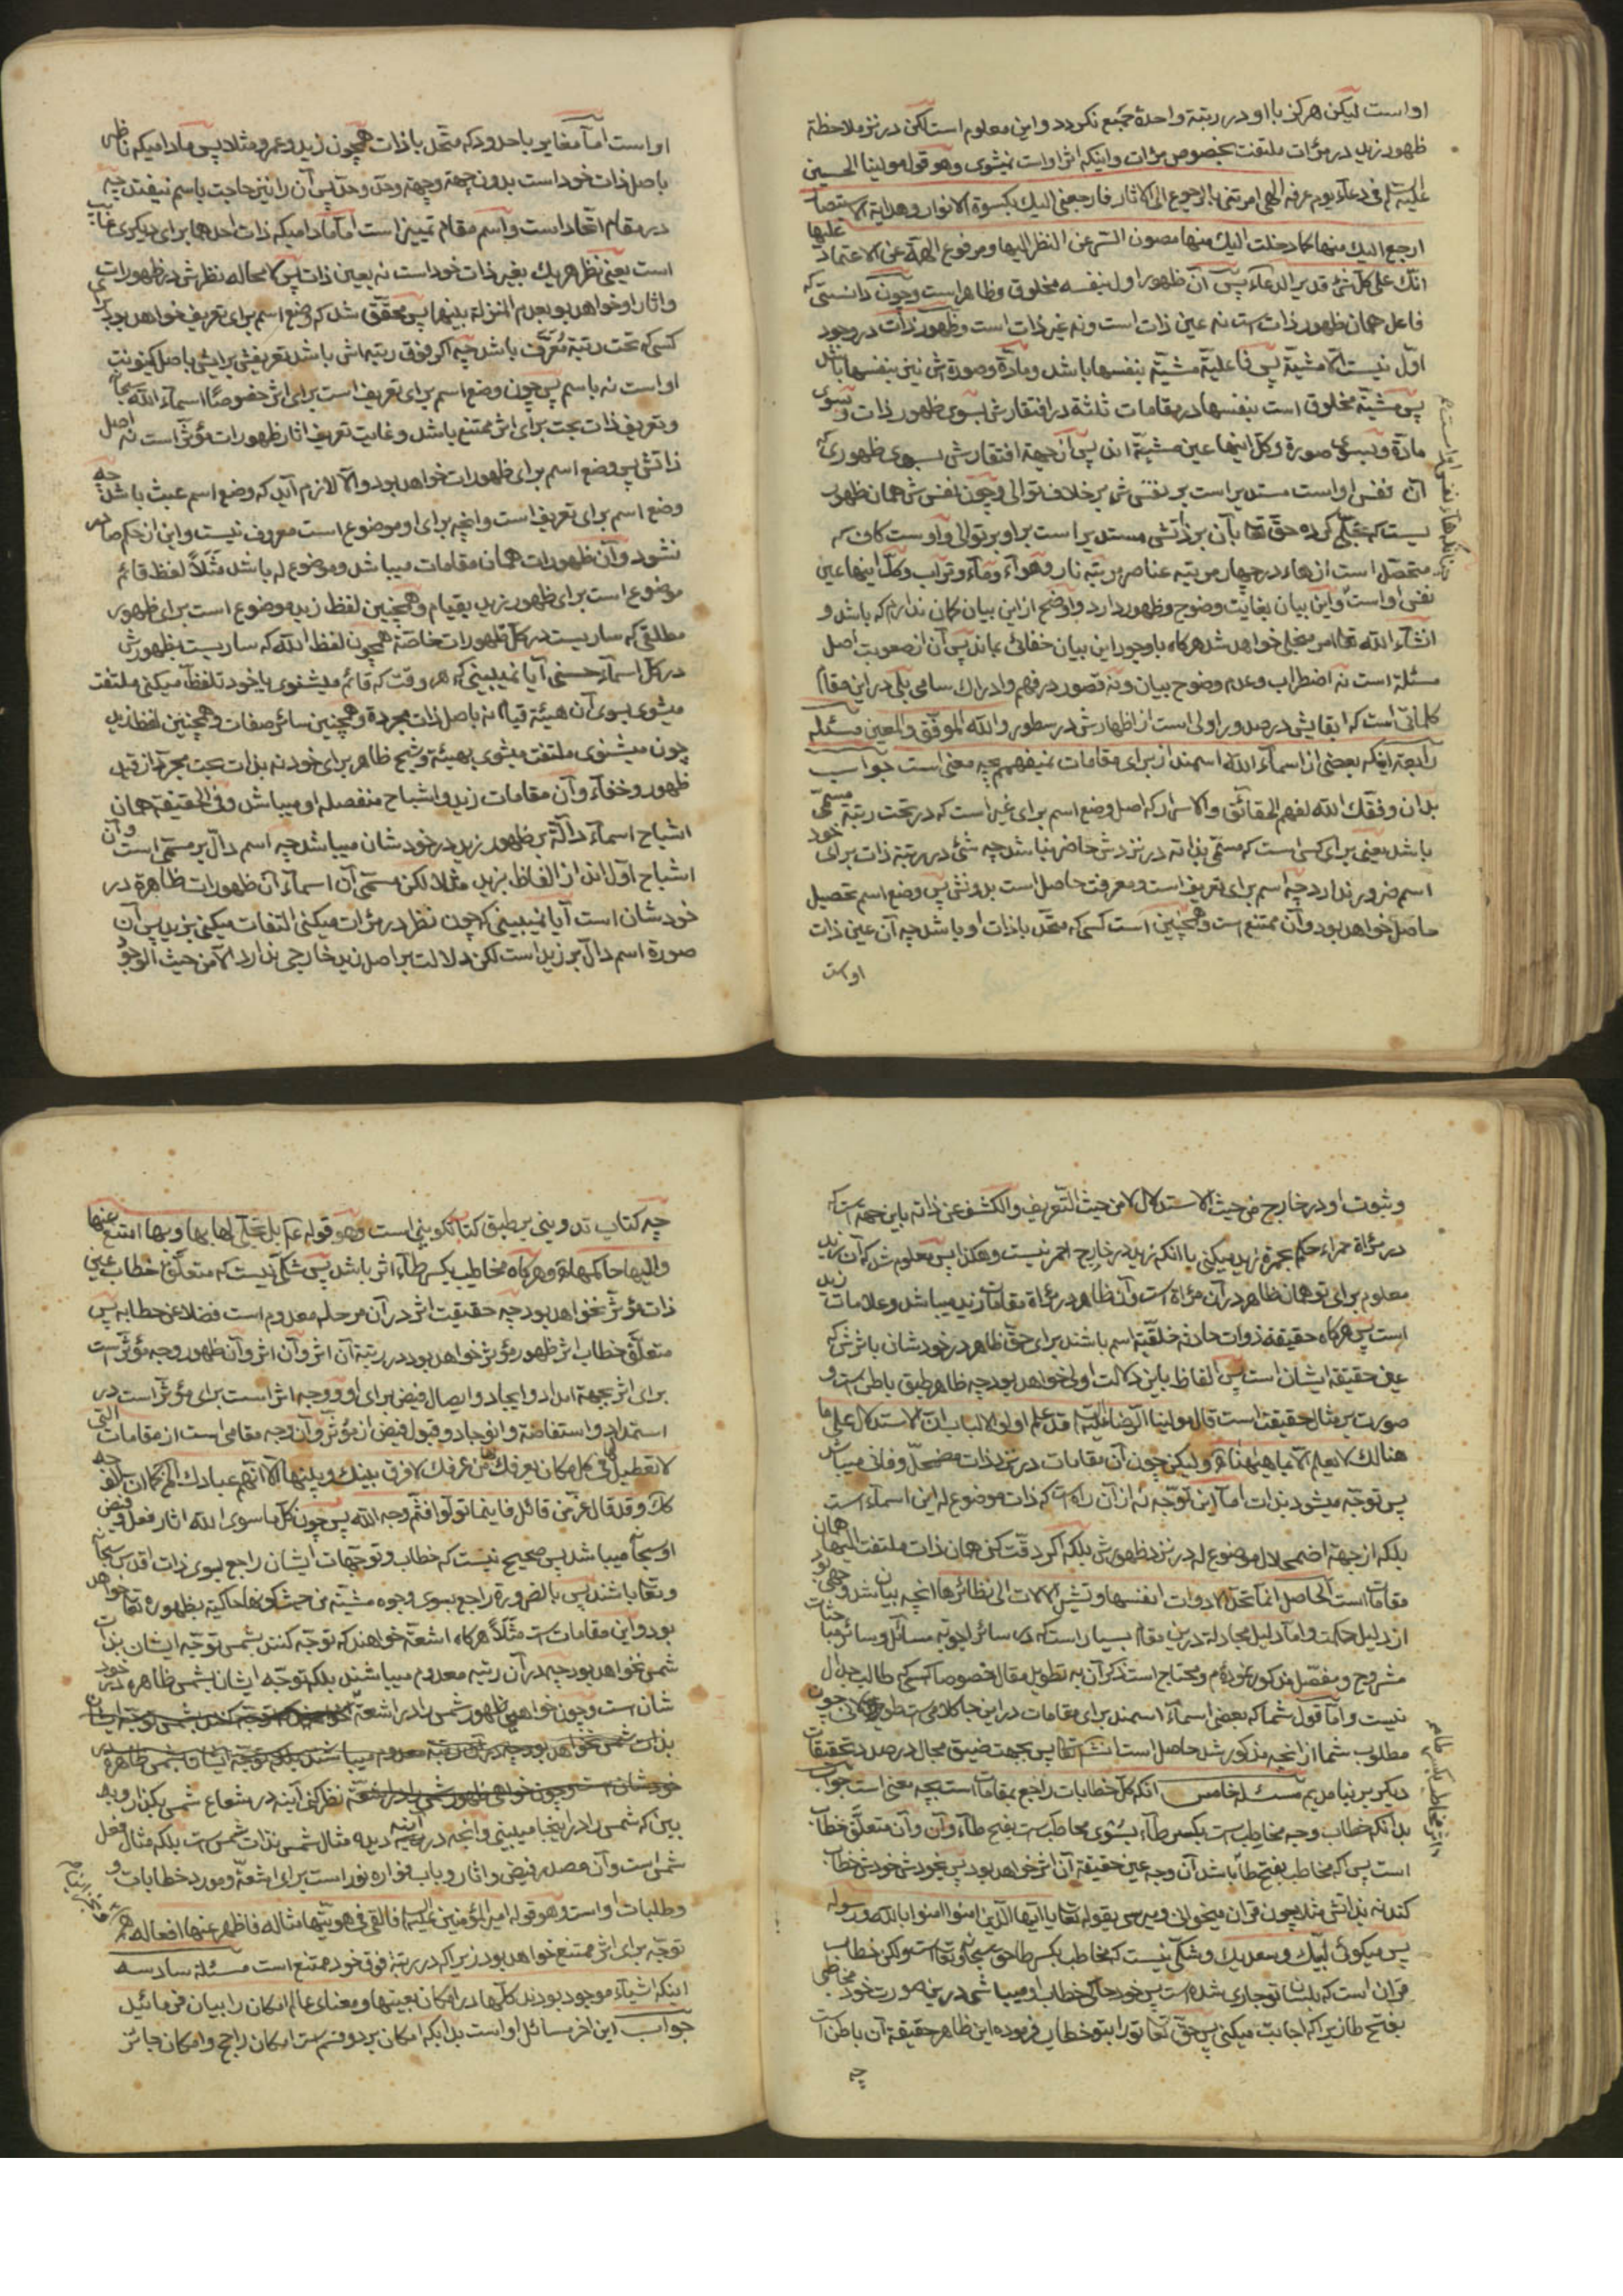 او است لیکن هرکز با او در رتبة واحدة جمع نکردد و این معلوم است لکن در نزد ملاحظة
ظهور زید در مرٔات ملتفت بخصوص مرٔات و اینکه اثر او است نمیشوی وهو قوله مولینا الحسین
علیه السلم فی دعاء یوم عرفه الهی امرتنی بالرجوع الی الاثار فارجعنی الیک بکسوة الانوار وهدایة الاستبصار
ارجع الیک منها کما دخلت الیک منها مصون السّر عن النظر الیها ومرفوع الهمّة عن الاعتماد علیها
انّک علی کلّ شئ قدیر الدعاء پس آن ظهور اول بنفسه مخلوق و ظاهر است و چون دانستی که
فاعل همان ظهور ذات است نه عین ذات است و نه غیر ذات است و ظهور ذات در وجود
اوّل نیست الّا مشیّة پس فاعلیّة مشیّة بنفسها باشد و مادّة و صورة ش نیز بنفسها باشد
پس مشیّة مخلوق است بنفسها در مقامات ثلثة در افتقارش بسوی ظهور ذات و بسوی
مادّة و بسوی صورة و کلّ اینها عین مشیّة اند پس از جهة افتقارش بسوی ظهوری که
آن نفس او است مستدیر است بر نفسش بر خلاف توالی و چون نفسش همان ظهور
یست که تجلّی کرده حق تعالی بآن بر ذاتش مستدیر است بر او بر توالی و او است کاف که
متحصّل است از هاء در چهار مرتبه عناصر مرتبه نار و هوآء و مآء و تراب و کلّ اینها عین
نفس او است و این بیان بغایت وضوح و ظهور دارد و اوضح از این بیان کمان ندارم که باشد و
انشآء الله تعالی امر منجلی خواهد شد هرکاه با وجود این بیان خفائی بماند پس آن از صعوبت اصل
مسئلة است نه اضطراب و عدم وضوح بیان و نه قصور در فهم و ادراک سامی بلی در این مقام
کلماتی است که ابقایش در صدور اولی است از اظهارش در سطور والله الموفّق والمعین مسئله
رابعة اینکه بعضی از اسمآء الله اسمند از برای مقامات نمیفهمم چه معنی است جواب
بدان وفّقک الله لفهم الحقائق والاسرار که اصل وضع اسم برای غیر است که در تحت رتبة مسمّی
باشد یعنی برای کسی است که مسمّی بذاته در نزدش حاضر نباشد چه شئ در رتبة ذات برای خود
اسم ضرور ندارد چه اسم برای تعریف است و معرفت حاصل است بدونش پس وضع اسم تحصیل
حاصل خواهد بود و آن ممتنع است و همچنین است کسی که متحد با ذات او باشد چه آن عین ذات
اوست
او است امّا مغایر با حدود که متحد با ذات همچون زید و عمرو مثلا پس مادامیکه ناظر
باصل ذات خود است بدون جهة و جهة وحدّ وحدّ پس آن را نیز حاجت باسم نیفتد چه
در مقام اتّحاد است و اسم مقام تمییز است امّا مادامیکه ذات احدهما برای دیکری غایب
است یعنی نظر هر یک بغیر ذات خود است نه بعین ذات پس لامحاله نظرش در ظهورات
و اثار او خواهد بود بعدم المنزلة بینهما پس محقّق شد که وضع اسم برای تعریف خواهد بود برای
کسی که تحت رتبة مُعَرَّف باشد چه اکر فوق رتبه اش باشد تعریفش برایش باصل کینونت
او است نه باسم پس چون وضع اسم برای تعریف است برای اثر خصوصًا اسمآء الله سبحانه
و تعریف ذات بحت برای اثر ممتنع باشد و غایت تعریف اثار ظهورات مؤثّر است نه اصل
ذاتش پس وضع اسم برای ظهورات خواهد بود و الّا لازم آید که وضع اسم عبث باشد چه
وضع اسم برای تعریف است و انچه برای او موضوع است معروف نیست و این از حکیم صادر
نشود و آن ظهورات همان مقامات میباشد و موضوع له باشد مثلًا لفظ قائم
موضوع است برای ظهور زید بقیام و همچنین لفظ زید موضوع است برای ظهور
مطلق که ساریست در کلّ ظهورات خاصّة همچون لفظ الله که ساریست ظهورش
در کل اسمآء حسنی آیا نمیبینی که هر وقت که قائم میشنوی یا خود تلفظ میکنی ملتفت
میشوی بسوی آن هیئة قیام نه باصل ذات مجردة و همچنین سائر صفات و همچنین لفظ زید
چون میشنوی ملتفت میشوی بهیئة و شبح ظاهر برای خود نه بذات بحت مجرّد از قید
ظهور و خفآء و آن مقامات زید و اشباح منفصله او میباشد و فی الحقیقة همان
اشباح اسمآء دالّة بر ظهور زید در خودشان میباشد چه اسم دالّ بر مسمّی است و آن
اشباح اوّل اند از الفاظ بزید مثلا لکن مسمّی آن اسمآء آن ظهورات ظاهرة در
خودشان است آیا نمیبینی که چون نظر در مرٔات میکنی التفات میکنی بزید پس آن
صورة اسم دالّ بر زید است لکن دلالت بر اصل زید خارجی ندارد الّا من حیث الوجود
و ثبوت او در خارج من حیث الاستدلال لا من حیث التّعریف والکشف عن ذاته باین جهة است که
در مرٔاة حمراء حکم بحمرة زید میکنی با انکه زید در خارج احمر نیست و هکذا پس معلوم شد که آن زید
معلوم برای تو همان ظاهر در آن مرٔاة است و آن ظاهر در مرٔاة مقامات زید میباشد و علامات زید
است پس هرکاه حقیقة ذوات حادثه خلقیّة اسم باشند برای حقّ ظاهر در خودشان باثرش که
عین حقیقة ایشان است پس الفاظ باین دلالت اولی خواهد بود چه ظاهر طبق باطن است و
صورت بر مثال حقیقت است قال مولینا الرّضا علیه السلم قد علم اولو الالباب انّ الاستدلال علی ما
هنالک لا یعلم الّا بما هیهنا و لیکن چون آن مقامات در نزد ذات مضمحلّ و فانی میباشد
پس توجّه میشود بذات امّا این توجّه نه از آن راه است که ذات موضوع له این اسمآء است
بلکه از جهة اضمحلال موضوع له در نزد ظهورش بلکه اکر دقّت کنی همان ذات ملتفت الیها همان
مقامات است الحاصل انّما تحدّ الادوات انفسها و تشیر الآلات الی نظائرها انچه بیان شد وجهی بود
از دلیل حکمت و امّا دلیل مجادلة درین مقام بسیار است که در سائر اجوبه مسائل و سائر مباحثات
مشروح و مفصّل مذکور نموده ام و محتاج است ذکر آن به تطویل مقال خصوصا کسی که طالب جدال
نیست و امّا قول شما که بعضی اسمآء اسمند برای مقامات در این جا کلامی است طویل چون
مطلوب شما از انچه مذکور شد حاصل است انشآء تعالی پس بجهت ضیق مجال درصدد تحقیقات
دیکر بر نیامدیم مسئله خامس انکه کلّ خطابات راجع بمقامات است بچه معنی است جواب
بدانکه خطاب وجه مخاطِب است بکسر طآء بسوی مخاطَب است بفتح طآء و آن و آن متعلّق خطاب
است پس که مخاطب بفتح طا باشد آن وجه عین حقیقة آن اثر خواهد بود پس بخودش خودش خطاب
کند نه بذاتش مثلا چون قران میخوانی و میرسی بقوله تعالی یا ایّها الّذین امنوا امنوا بالله ورسوله
پس میکوئی لبّیک و سعدیک و شکّی نیست که مخاطب بکسر طا حق سبحانه و تعالی است ولکن خطاب
قران است که بلسان تو جاری شده است پس خود حاکی خطاب او میباشی درین صورت خود مخاطبی
بفتح طا زیرا که اجابت میکنی پس حقّ تعالی تو را بتو خطاب فرموده این ظاهر حقیقة آن باطن است
چه
چه کتاب تدوینی بر طبق کتاب تکوینی است وهو قوله ع بل تجلّی لها بها وبها امتنع منها
والیها حاکمها و هرکاه مخاطِب بکسر طآء اثر باشد پس شکّی نیست که متعلّق خطاب عین
ذات مؤثّر نخواهد بود چه حقیقت اثر در آن مرحلة معدوم است فضلا عن خطابه پس
متعلَّق خطاب اثر ظهور مؤثر خواهد بود در رتبة آن اثر و آن اثر و آن ظهور وجه مؤثّر است
برای اثر بجهة امداد و ایجاد و ایصال فیض برای او و وجه اثر است برای مؤثّر است در
استمداد و استفاضة و انوجاد و قبول فیض از مؤثّر و آن وجه مقامی است از مقامات الّتی
لا تعطیل لها فی کلّ مکان یعرفک بها من عرفک لا فرق بینک و بینها الّا انّهم عبادک
وقد قال عزّ من قائل فاینما تولّوا فثمّ وجه الله پس چون کلّ ما سوی الله اثار فعل و فیض
او سبحانه میباشد پس صحیح نیست که خطاب و توجّهات ایشان راجع بسوی ذات اقدس سبحانه
و تعالی باشند پس بالضرورة راجع بسوی وجوه مشیّة من حیث کونها حاکیة بظهوره تعالی خواهد
بود و این مقامات است مثلًا هرکاه اشعّه خواهند که توجّه کنند بشمس توجّه ایشان بذات
شمس نخواهد بود چه در آن رتبه معدوم میباشند بلکه توجّه ایشان بشمس ظاهره در خود
شان است و چون خواهی ظهور شمس را در اشعّة
نظر کنی آینه در شعاع شمس بکذار و به
بین که شمس را در اینجا میبینی و آنچه در آینه دیده مثال شمس نه ذات شمس است بلکه مثال فعل
شمس است و آن مصدر فیض و اثار و باب فواره نور است برای اشعّة و مورد خطابات و
وطلبات او است وهو قوله امیر المؤمنین علیه السلم فالقی فی هویّتها مثاله فاظهر عنها افعاله
توجّه برای اثر ممتنع خواهد بود زیرا که در رتبة فوق خود ممتنع است مسئله سادسه
اینکه اشیآء موجود بودند کلّها در امکان بعینها و معنای عالم امکان را بیان فرمائید
جواب این اخر مسائل او است بدانکه امکان بر دو قسم است امکان راجح و امکان جائز